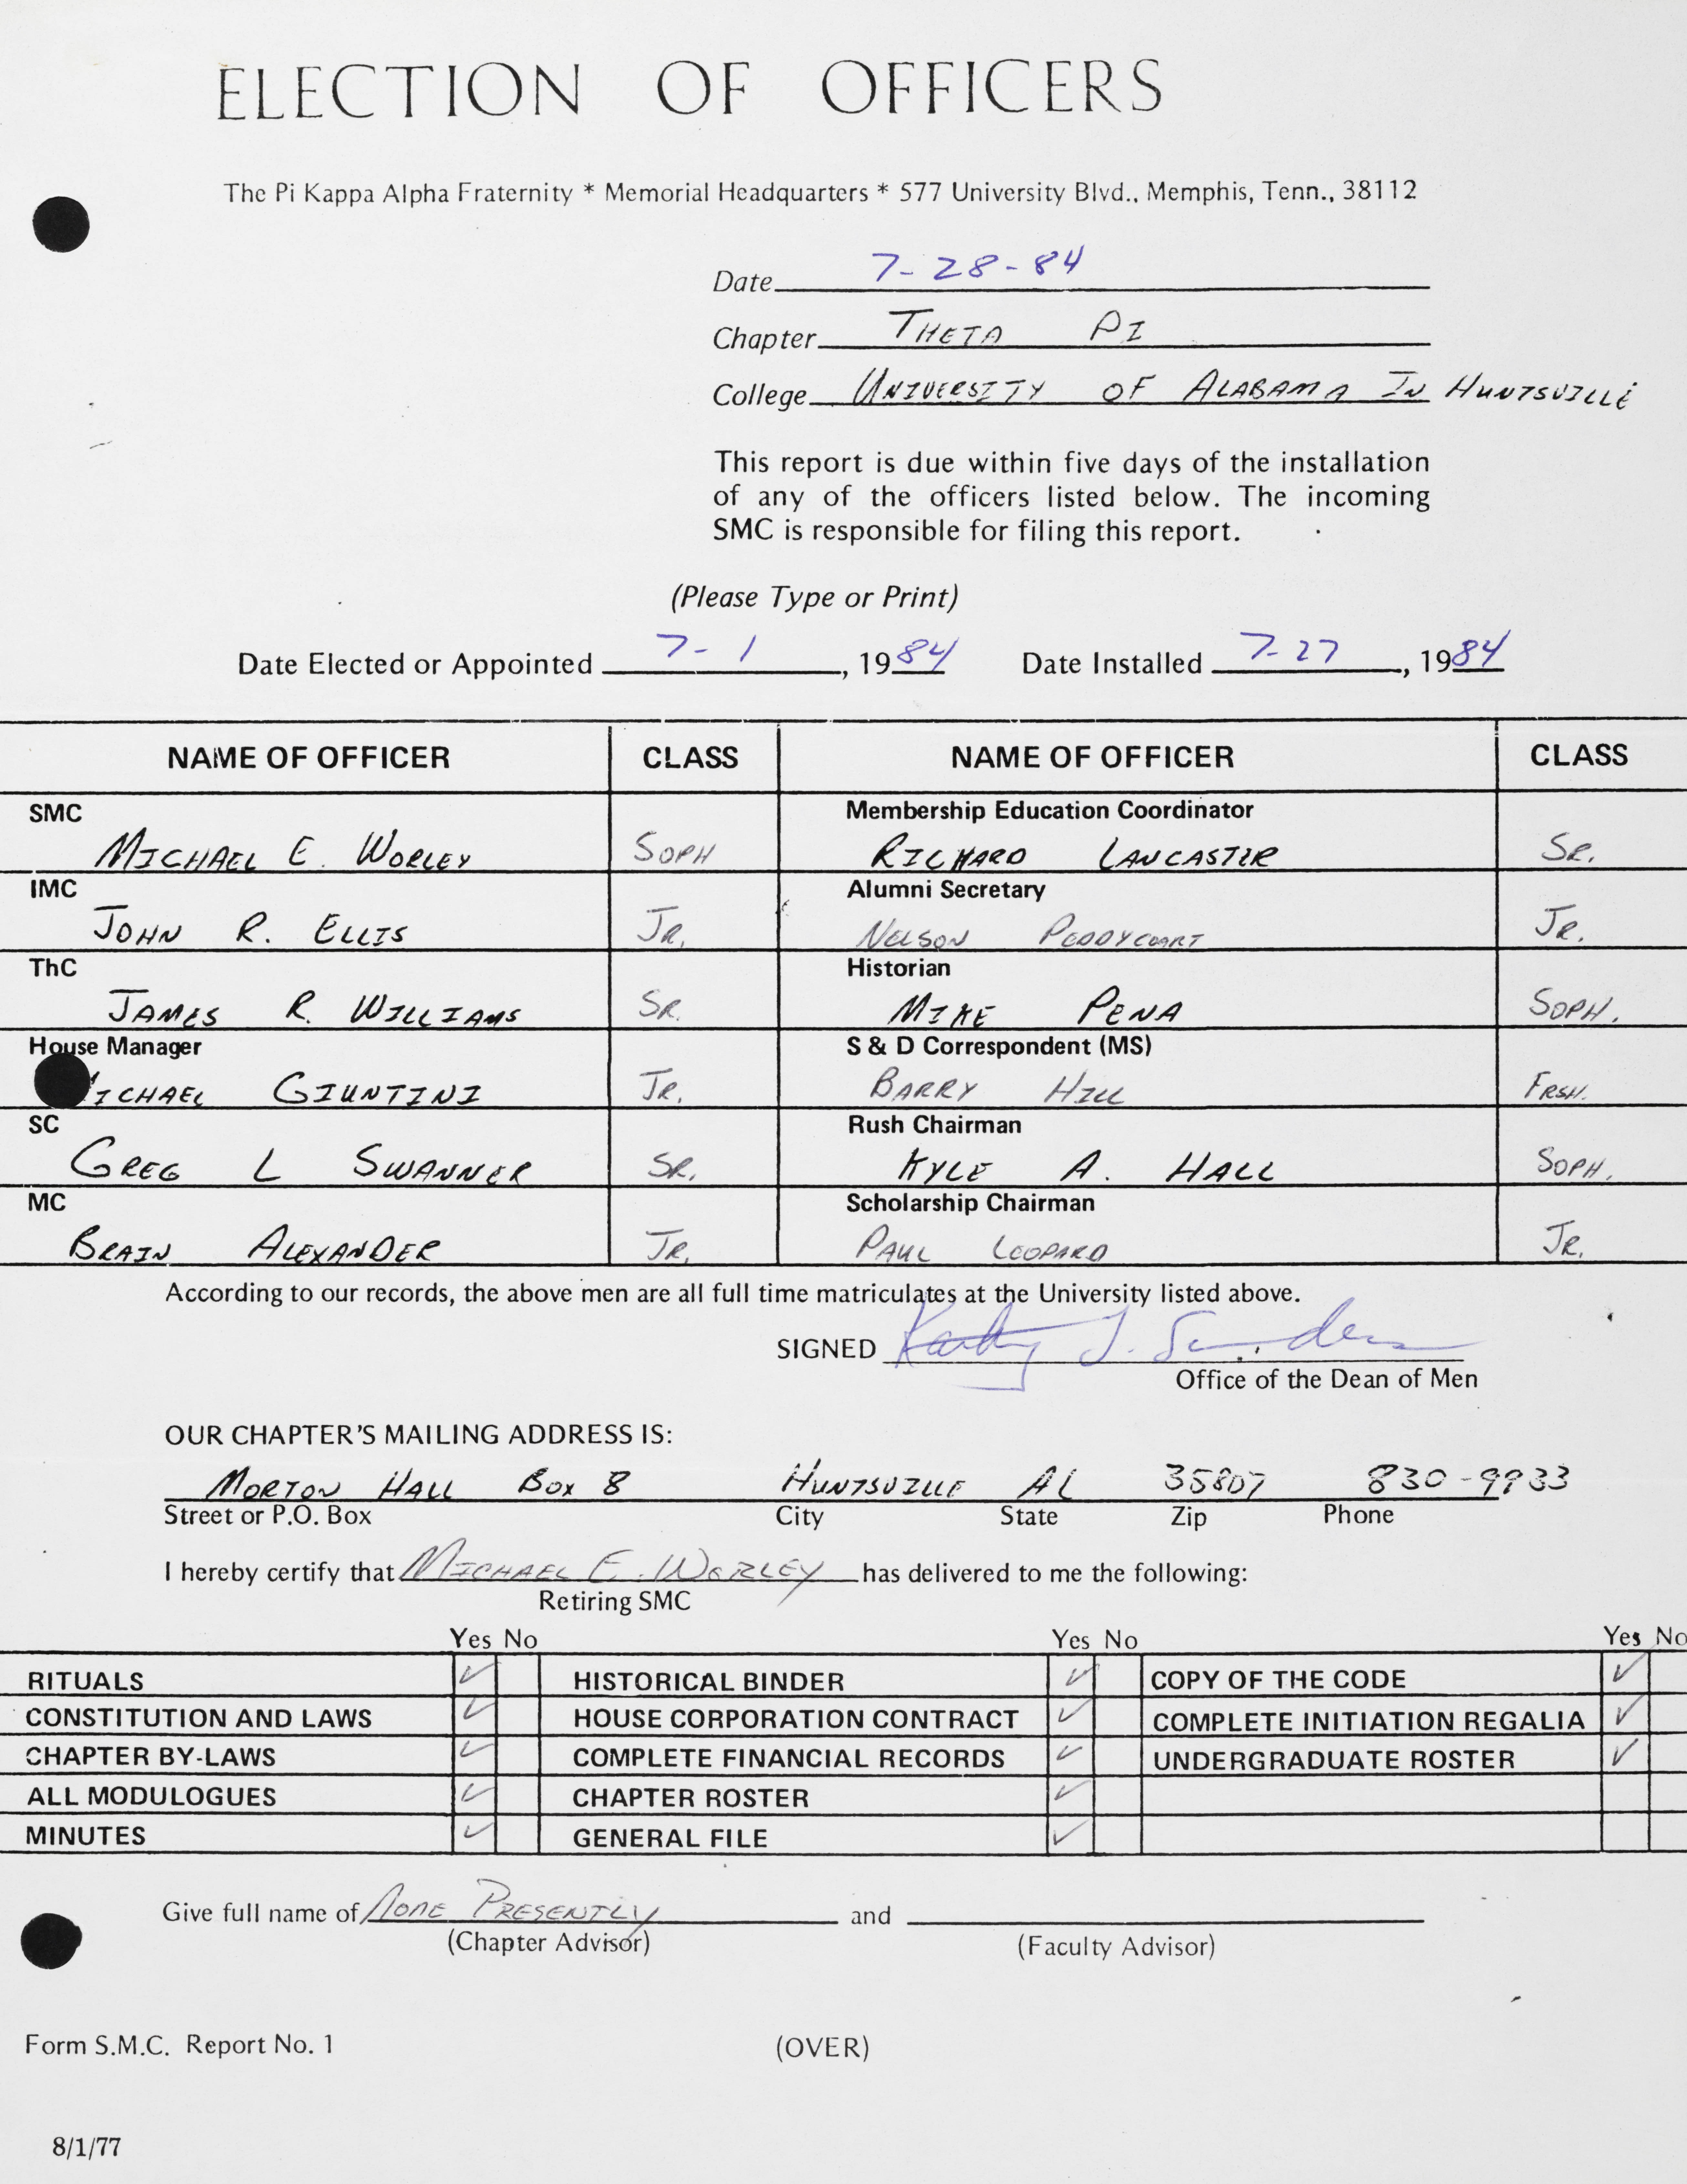 ELECTION OF OFFICERS
The Pi Kappa Alpha Fraternity * Memorial Headquarters * 577 University Blvd., Memphis, Tenn., 38112
Date 7-28-84
Chapter THETA PI
College UNIVERSITY OF ALABAMA IN HUNTSVILLE
This report is due within five days of the installation
of any of the officers listed below. The incoming
SMC is responsible for filing this report.
(Please Type or Print)
Date Elected or Appointed 7-1, 1984 Date Installed 7-27, 1984
NAME OF OFFICER CLASS NAME OF OFFICER CLASS
SMC Membership Education Coordinator
MICHAEL E. WORLEY SOPH RICHARD LANCASTER SR.
IMC Alumni Secretary
JOHN R. ELLIS JR. NELSON PEDDYCOART JR.
ThC Historian
JAMES R. WILLIAMS SR. MIKE PENA SOPH.
House Manager S & D Correspondent (MS)
MICHAEL GIUNTINI JR. BARRY HILL FRSH.
SC Rush Chairman
GREG L SWANNER SR. KYLE A. HALL SOPH.
MC Scholarship Chairman
BRAIN ALEXANDER JR. PAUL LEOPARD JR.
According to our records, the above men are all full time matriculates at the University listed above.
SIGNED Kathy J. Sanders
Office of the Dean of Men
OUR CHAPTER'S MAILING ADDRESS IS:
MORTON HALL BOX 8 HUNTSVILLE AL 35807 830-9933
Street or P.O. Box City State Zip Phone
I hereby certify that MICHAEL E. WORLEY has delivered to me the following:
Retiring SMC
Yes No Yes No Yes No
RITUALS ✓ HISTORICAL BINDER ✓ COPY OF THE CODE ✓
CONSTITUTION AND LAWS ✓ HOUSE CORPORATION CONTRACT ✓ COMPLETE INITIATION REGALIA ✓
CHAPTER BY-LAWS ✓ COMPLETE FINANCIAL RECORDS ✓ UNDERGRADUATE ROSTER ✓
ALL MODULOGUES ✓ CHAPTER ROSTER ✓
MINUTES ✓ GENERAL FILE ✓
Give full name of NONE PRESENTLY and
(Chapter Advisor) (Faculty Advisor)
Form S.M.C. Report No. 1 (OVER)
8/1/77